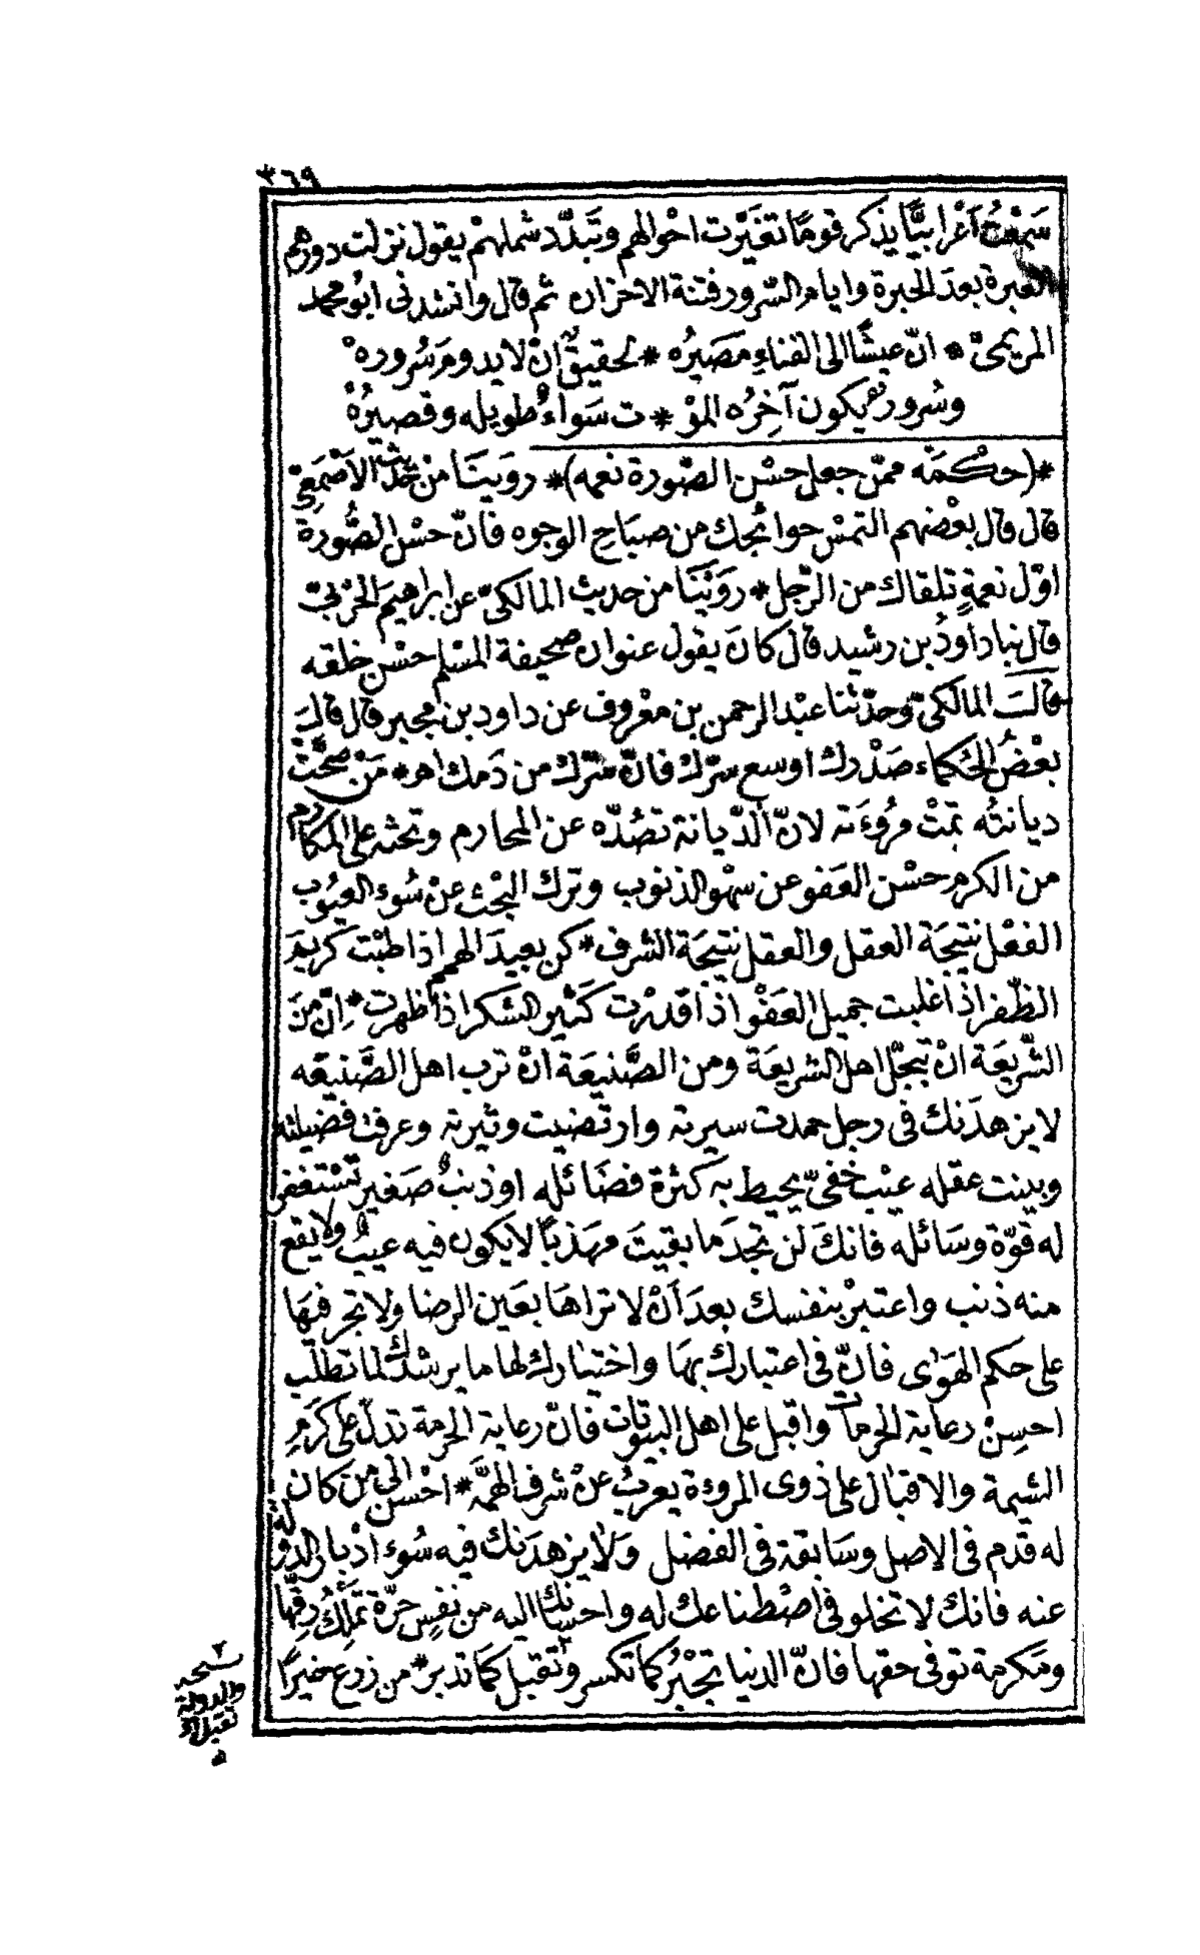 ٣٦٩
سَمِعْتُ أعْرابيًّا يذكر قومًا تغيّرت احْوالهم وتبدّد شملهمْ يقول نزلت دورهم
العبرة بعدَ الحبرة وايام السّرور فتنة الاحزان ثم قال وانشدنى ابُو محمد
المريمىّ * انّ عيشًا الى الفناءِ مَصيرُه * لحقيقٌ انْ لا يدومَ سُروره
وسُرور يكون آخِرُه الموْ * ت سَواءٌ طويله وقصيرُهْ
*(حكْمَة ممّن جعل حسْن الصّورة نعمه)* روَينَا من حَديث الاَصْمَعِى
قال قال بعْضهم التمسْ حوائجك من صباحِ الوجوه فانّ حسْن الصُّورة
اوّل نعمةٍ تلقاك من الرّجل * روَيْنَا من حديث المالكىّ عن ابراهيم الحَرْبىّ
قال نبا داودُ بن رشيد قال كانَ يقول عنوان صحيفة المسْلم حسْن خلقه
قالَ المالكىّ وحدّثنا عبْد الرحمن بن معْروف عن داود بن مجبر قال قالَ
بعْضُ الحُكماء صَدْرك اوسع سرّك فانّ سِرّك من دَمك اهـ * مَنْ صحَّتْ
ديانتُه تمتْ مرُوءَته لانّ الدّيانة تصُدّه عن المحارم وتحثه على المكارم
من الكرم حسْن العَفو عن سهْو الذنوب وترك البحْث عنْ سُوء العيُوب
الفعْل نتيجَة العقل والعقل نتيجَة الشرف * كن بعيدَ الهمم اذا طلبْت كريمَ
الظّفر اذا غلبت جميل العَفْو اذا قدرْت كَثير الشكر اذا ظهرت * اِنّ منَ
الشّريعَة انْ تبجّل اهل الشريعَة ومن الصَّنيعَة انْ ترب اهل الصَّنيعَه
لا يزهدَنك فى رجل حمدت سيرته وارتضيت وتيرته وعرفت فضيلته
وبينت عقله عيْب خفىّ يحيط به كثرة فضَائله او ذنبٌ صَغير تسْتغفر
له قوّة وسَائله فانكَ لن تجدَ ما بقيتَ مهَذبًا لا يكون فيه عيبٌ ولا يقع
منه ذنب واعتبرْ بنفسك بعدَ أنْ لا تراهَا بعَين الرضا ولا تجر فيهَا
على حكم الهَوَى فانّ فى اعتبارك بهَا واختبارك لها ما يرشدك لما تطلب
احسِنْ رعاية الحُرمات واقبل على اهل البيُوتات فانّ رعاية الحرمة تدلّ على كرَمِ
الشيمة والاقبال على ذوى المروءة يعربُ عنْ شرف الهمَّة * احْسن الى من كان
له قَدم فى الاصل وسَابقة فى الفضل وَلا يزهدَنك فيه سُوء ادْبار الدولة
عنه فانك لا تخلو فى اصْطناعك له واحسانك اليه من نفسٍ حُرّة تَمْلِكُ رِقّهَا
ومَكرمة توفى حقها فانّ الدنيا تجْبُر كما تكسر وتقبل كمَا تدبر * من زرع خيرًا
نسخه
والدولة
تقبل